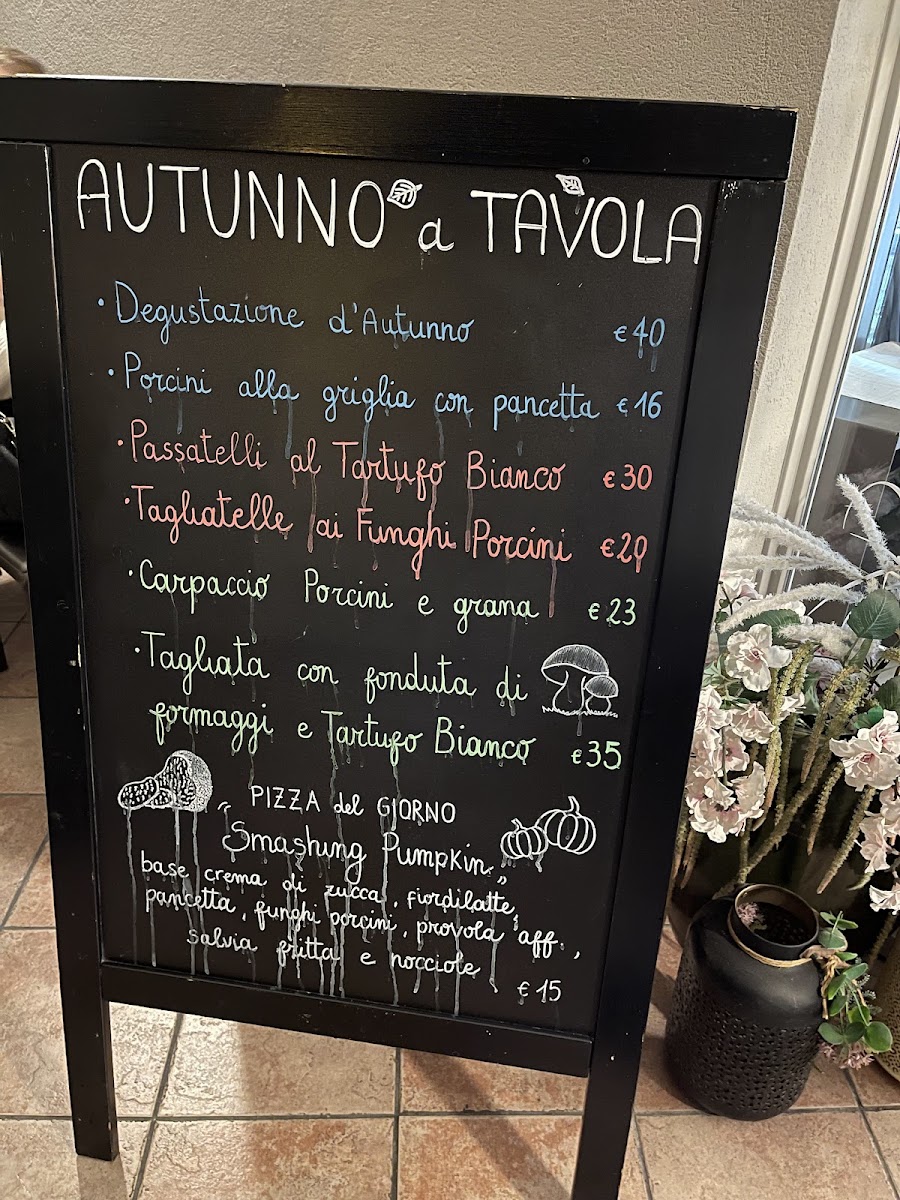 AUTUNNO a TAVOLA
• Degustazione d'Autunno €40
• Porcini alla griglia con pancetta €16
• Passatelli al Tartufo Bianco €30
• Tagliatelle ai Funghi Porcini €20
• Carpaccio Porcini e grana €23
• Tagliata con fonduta di
formaggi e Tartufo Bianco €35
PIZZA del GIORNO
"Smashing Pumpkin"
base crema di zucca, fiordilatte,
pancetta, funghi porcini, provola aff.,
salvia fritta e nocciole
€15